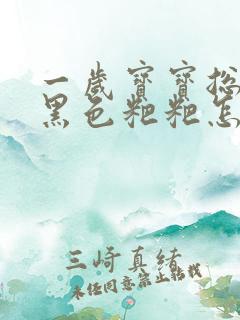 一歲寳寳拉
黑色粑粑怎
三崎真緒
未经同意禁止转载